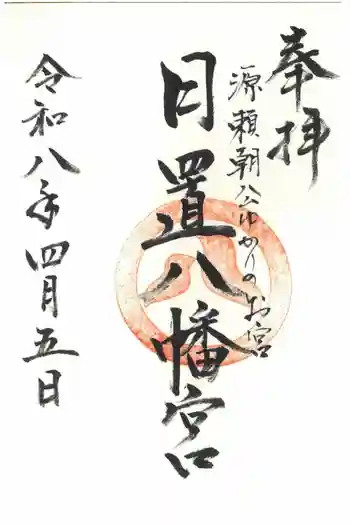 奉拝
源頼朝公ゆかりのお宮
日置八幡宮
令和八年四月五日